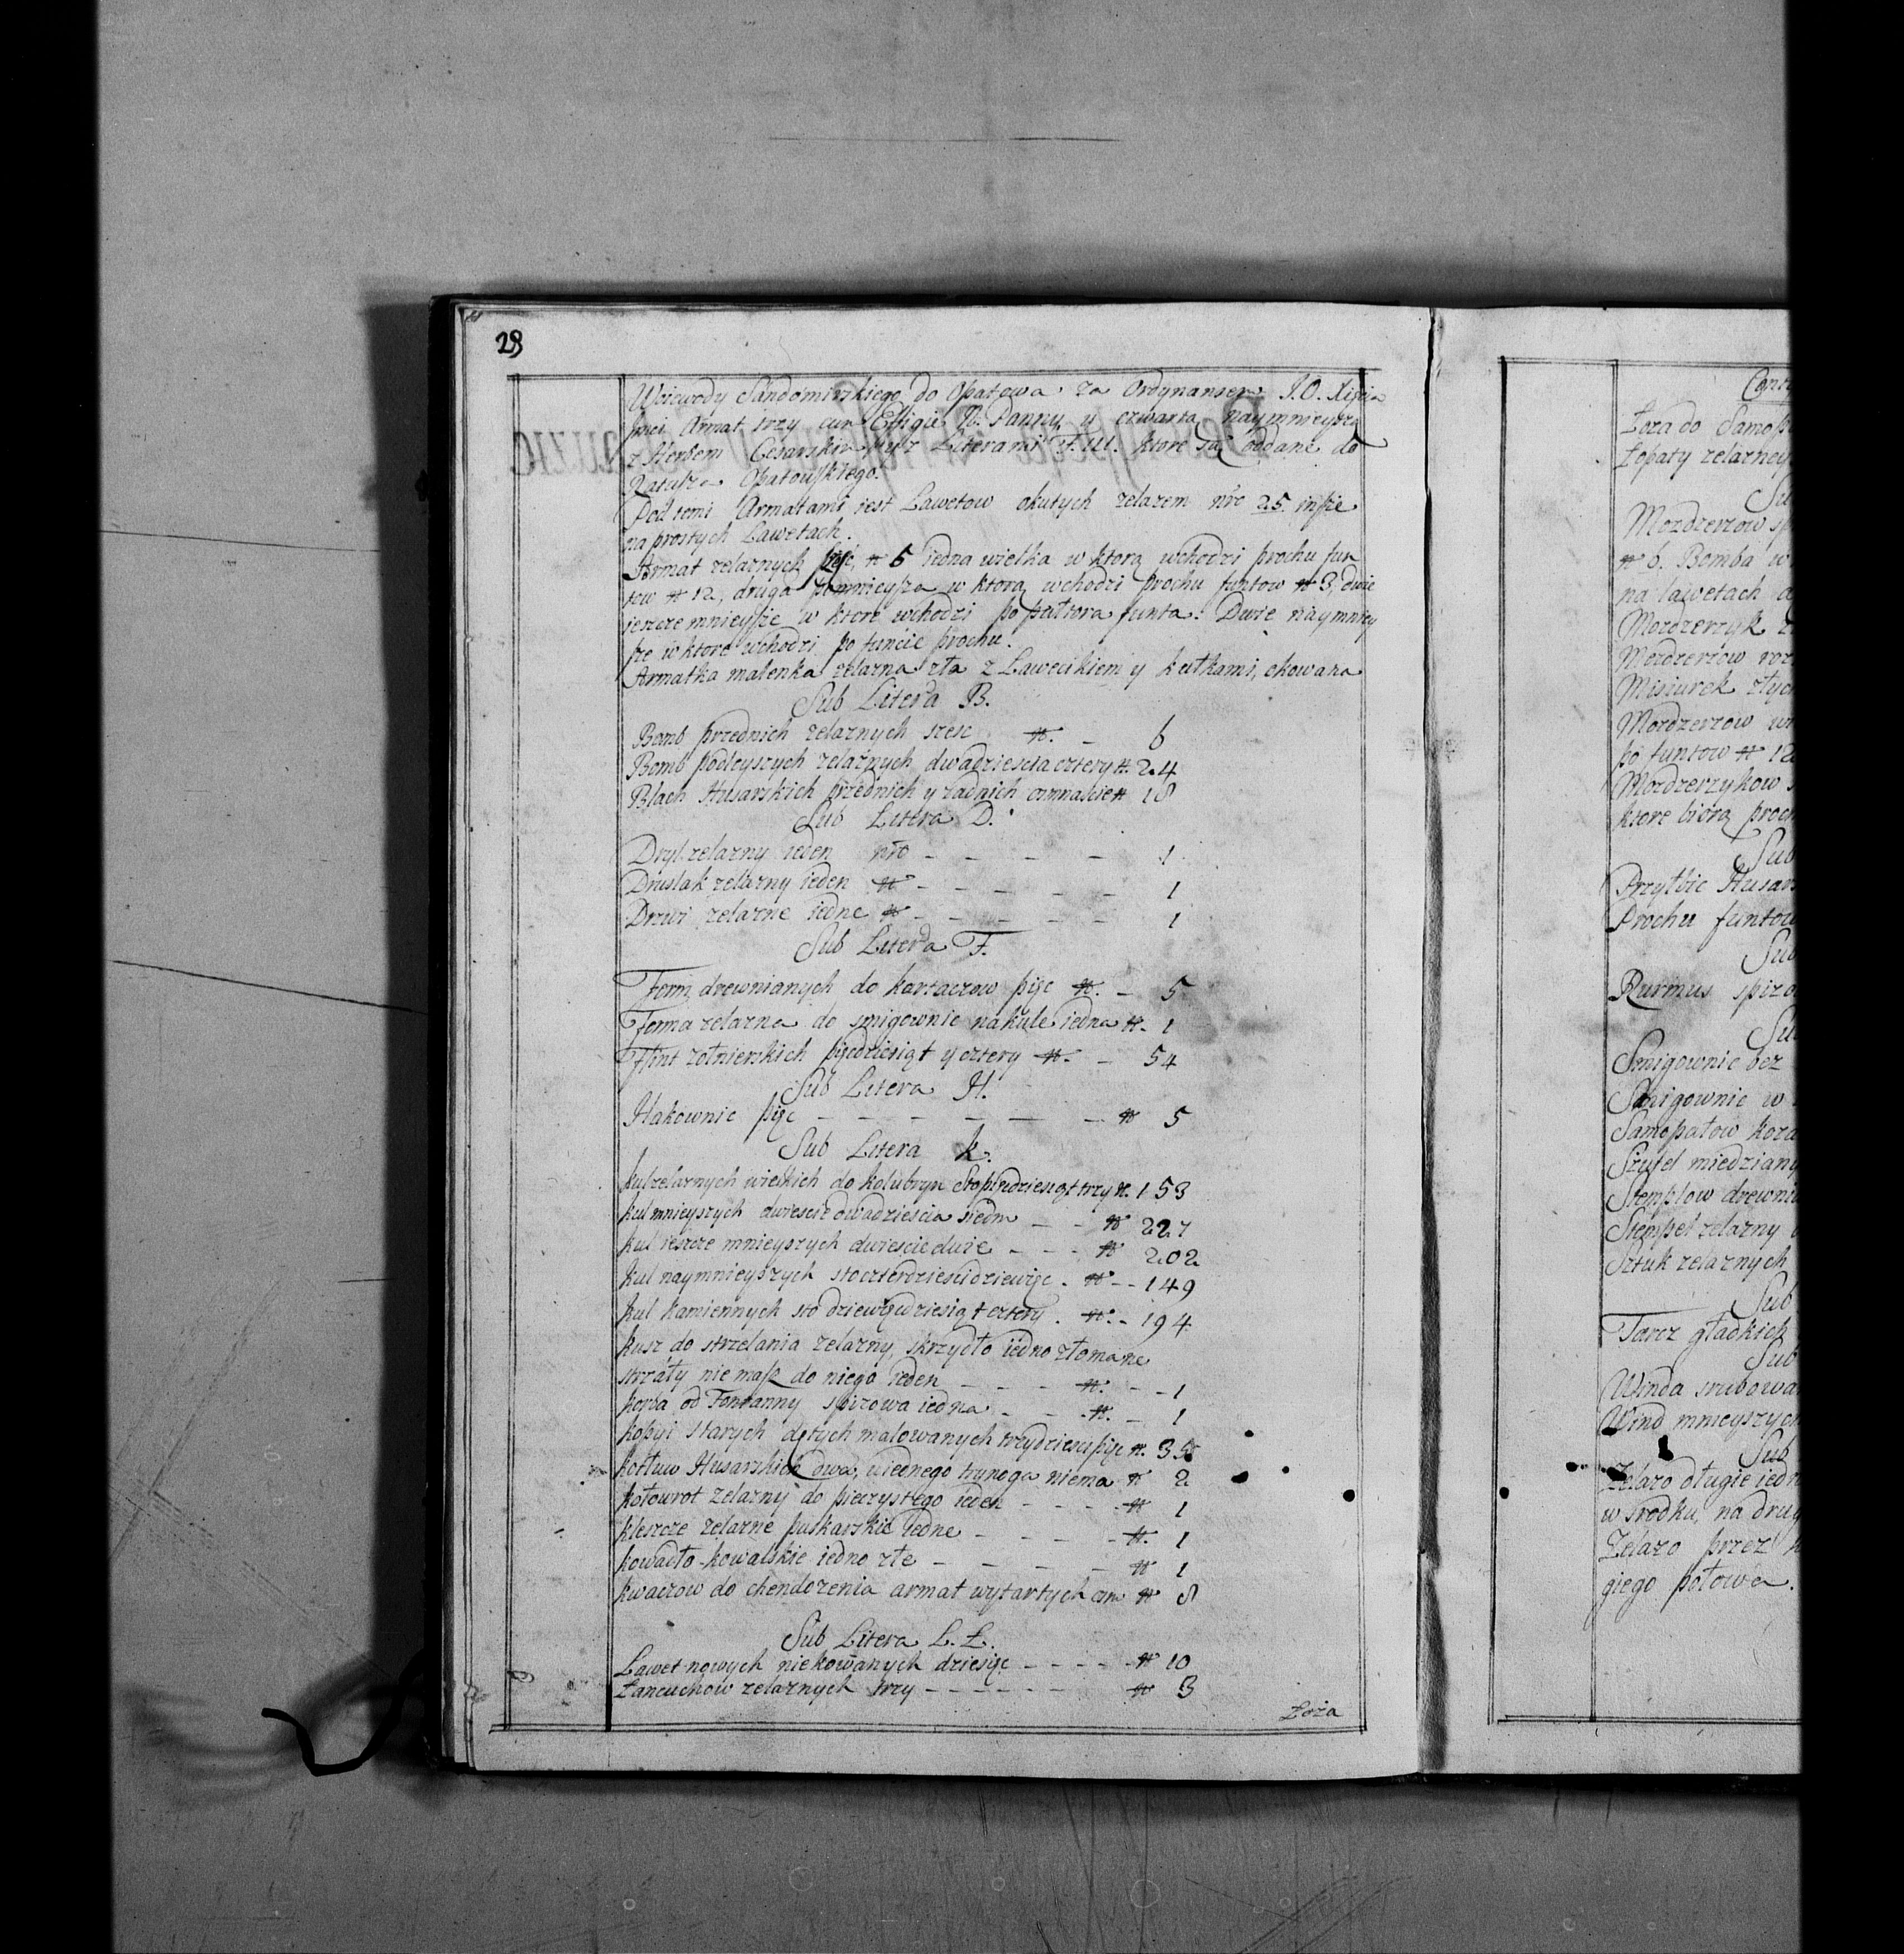 29
Woiewody Sandomirskiego do Opatowa za Ordynansem J.O. Xięcia
Jmci Armat trzy cum Effigie N. Panny, y czwarta naymnieysza
z Herbem Cesarskim y z Literami F. III. ktore są oddane do
Ratusza Opatowskiego.
Pod temi Armatami iest Lawetow okutych zelazem nro 25. insze
na prostych Lawetach.
Armat zelaznych sześć, # 6 iedna wielka w ktorą wchodzi prochu fun
tow # 12, druga pomnieysza w ktorą wchodzi prochu funtow # 3, dwie
ieszcze mnieysze w ktore wchodzi po pułtora funta. Dwie naymniey
sze w ktore wchodzi po funcie prochu.
Armatka malenka zelazna zła z Lawecikiem y kulkami, okowana
Sub Litera B.
Bomb przednich zelaznych szesc #. – 6
Bomb podleyszych zelaznych dwadziescia cztery #. 24
Blach Husarskich przednich y zadnich osmnascie # 18
Sub Litera D.
Dryl zelazny ieden nro – – – – 1
Druslak zelazny ieden # – – – – – 1
Drzwi zelazne iedne # – – – – – 1
Sub Litera F.
Form drewnianych do kartaczow pięc #. – 5
Forma zelazna do smigownic na kule iedna #. 1
Flint zołnierskich pięcdziesiąt y cztery #. – 54
Sub Litera H.
Hakownic pięc – – – – – – # 5
Sub Litera K.
Kul zelaznych wielkich do kolubryn sto pięcdziesiąt trzy #. 153
Kul mnieyszych dwiescie dwadziescia siedm – – # 227
Kul ieszcze mnieyszych dwiescie dwie – – – # 202
Kul naymnieyszych sto czterdziesci dziewięc . # – – 149
Kul kamiennych sto dziewięcdziesiąt cztery . #. – 194
Kusz do strzelania zelazny, skrzydło iedno złomane
strzały nie masz do niego ieden – – – #. – – 1
Korba od Fontanny spizowa iedna – – – #. – 1
Kopyi starych dętych malowanych trzydziesci pięc #. 35
Kotłow Husarskich dwa, u iednego trynoga niema # 2
Kołowrot zelazny do pieczystego ieden – – – – # 1
Kleszcze zelazne puskarskie iedne – – – – #. 1
Kowadło kowalskie iedno złe – – – – – # 1
Kwaczow do chendozenia armat wytartych osm # 8
Sub Litera L. Ł.
Lawet nowych niekowanych dziesięc – – – – # 10
Łancuchow zelaznych trzy – – – – – – # 3
Łoza
Łoza do
Łopaty zelazney
Mozdzerzow
# 6. Bomba w
na lawetach
Mozdzerzyk
Mozdzerzow
Misiurek złych
Mozdzerzow
po funtow # 12
Mozdzerzykow
ktore biorą
Sub
Przyłbic
Prochu funtow
Sub
Rurmus
Smigownic bez
Smigownic w
Samopałow
Szufel
Stemplow
Stempel zelazny
Sztuk zelaznych
Sub
Tarcz gładkich
Sub
Winda
Wind mnieyszych
Sub
Zelazo długie
w srodku, na
Zelazo przez
giego połowa.